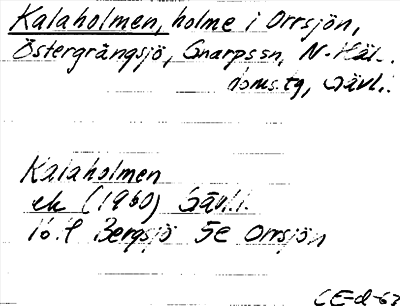 Kalaholmen, holme i Orrsjön,
Östergrängsjö, Gnarps sn, N. Häl.
doms.tg, Gävl.
Kalaholmen
ek (1960) Gävl.l.
16 f Bergsjö 5e Orrsjön
CE-d-62